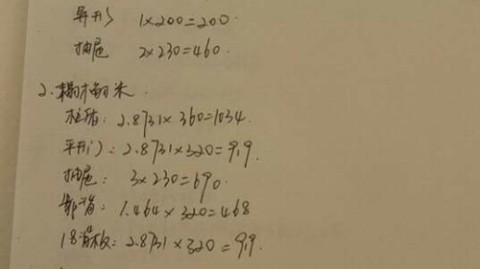 异形 1×200=200.
抽屉 2×230=460.
2.榻榻米.
柜体: 2.8731×360=1034.
平开门: 2.8731×320=919.
抽屉: 3×230=690.
1.464×320=468
18背板: 2.8731×320=919.